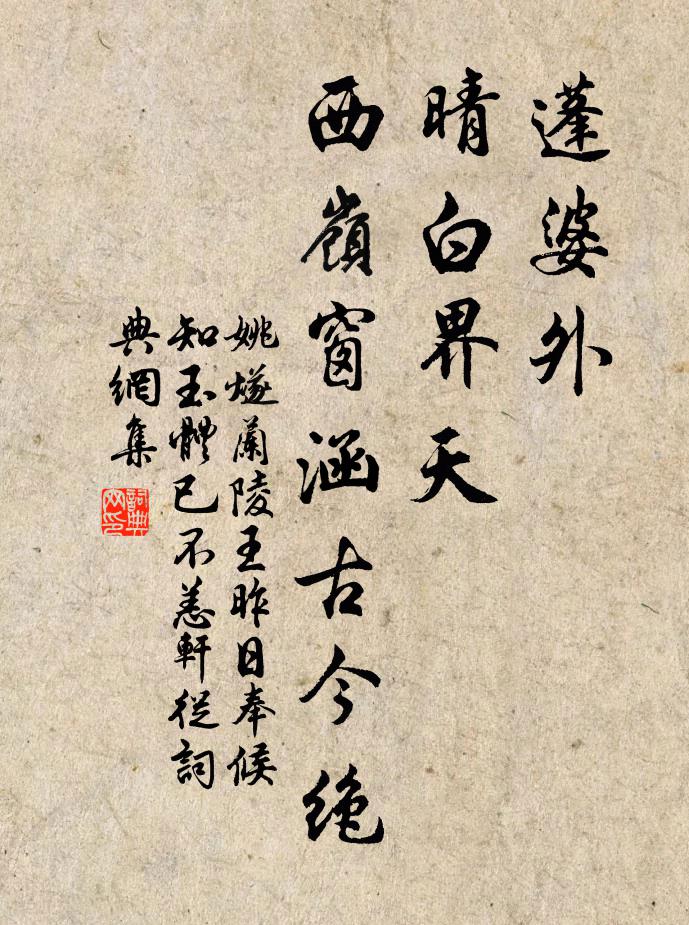 蓬婆外
晴白界天
西嶺窗涵古今絶
姚燧蘭陵王昨日奉候
知玉體已不恙軒從詞
典網集
詞典
网印